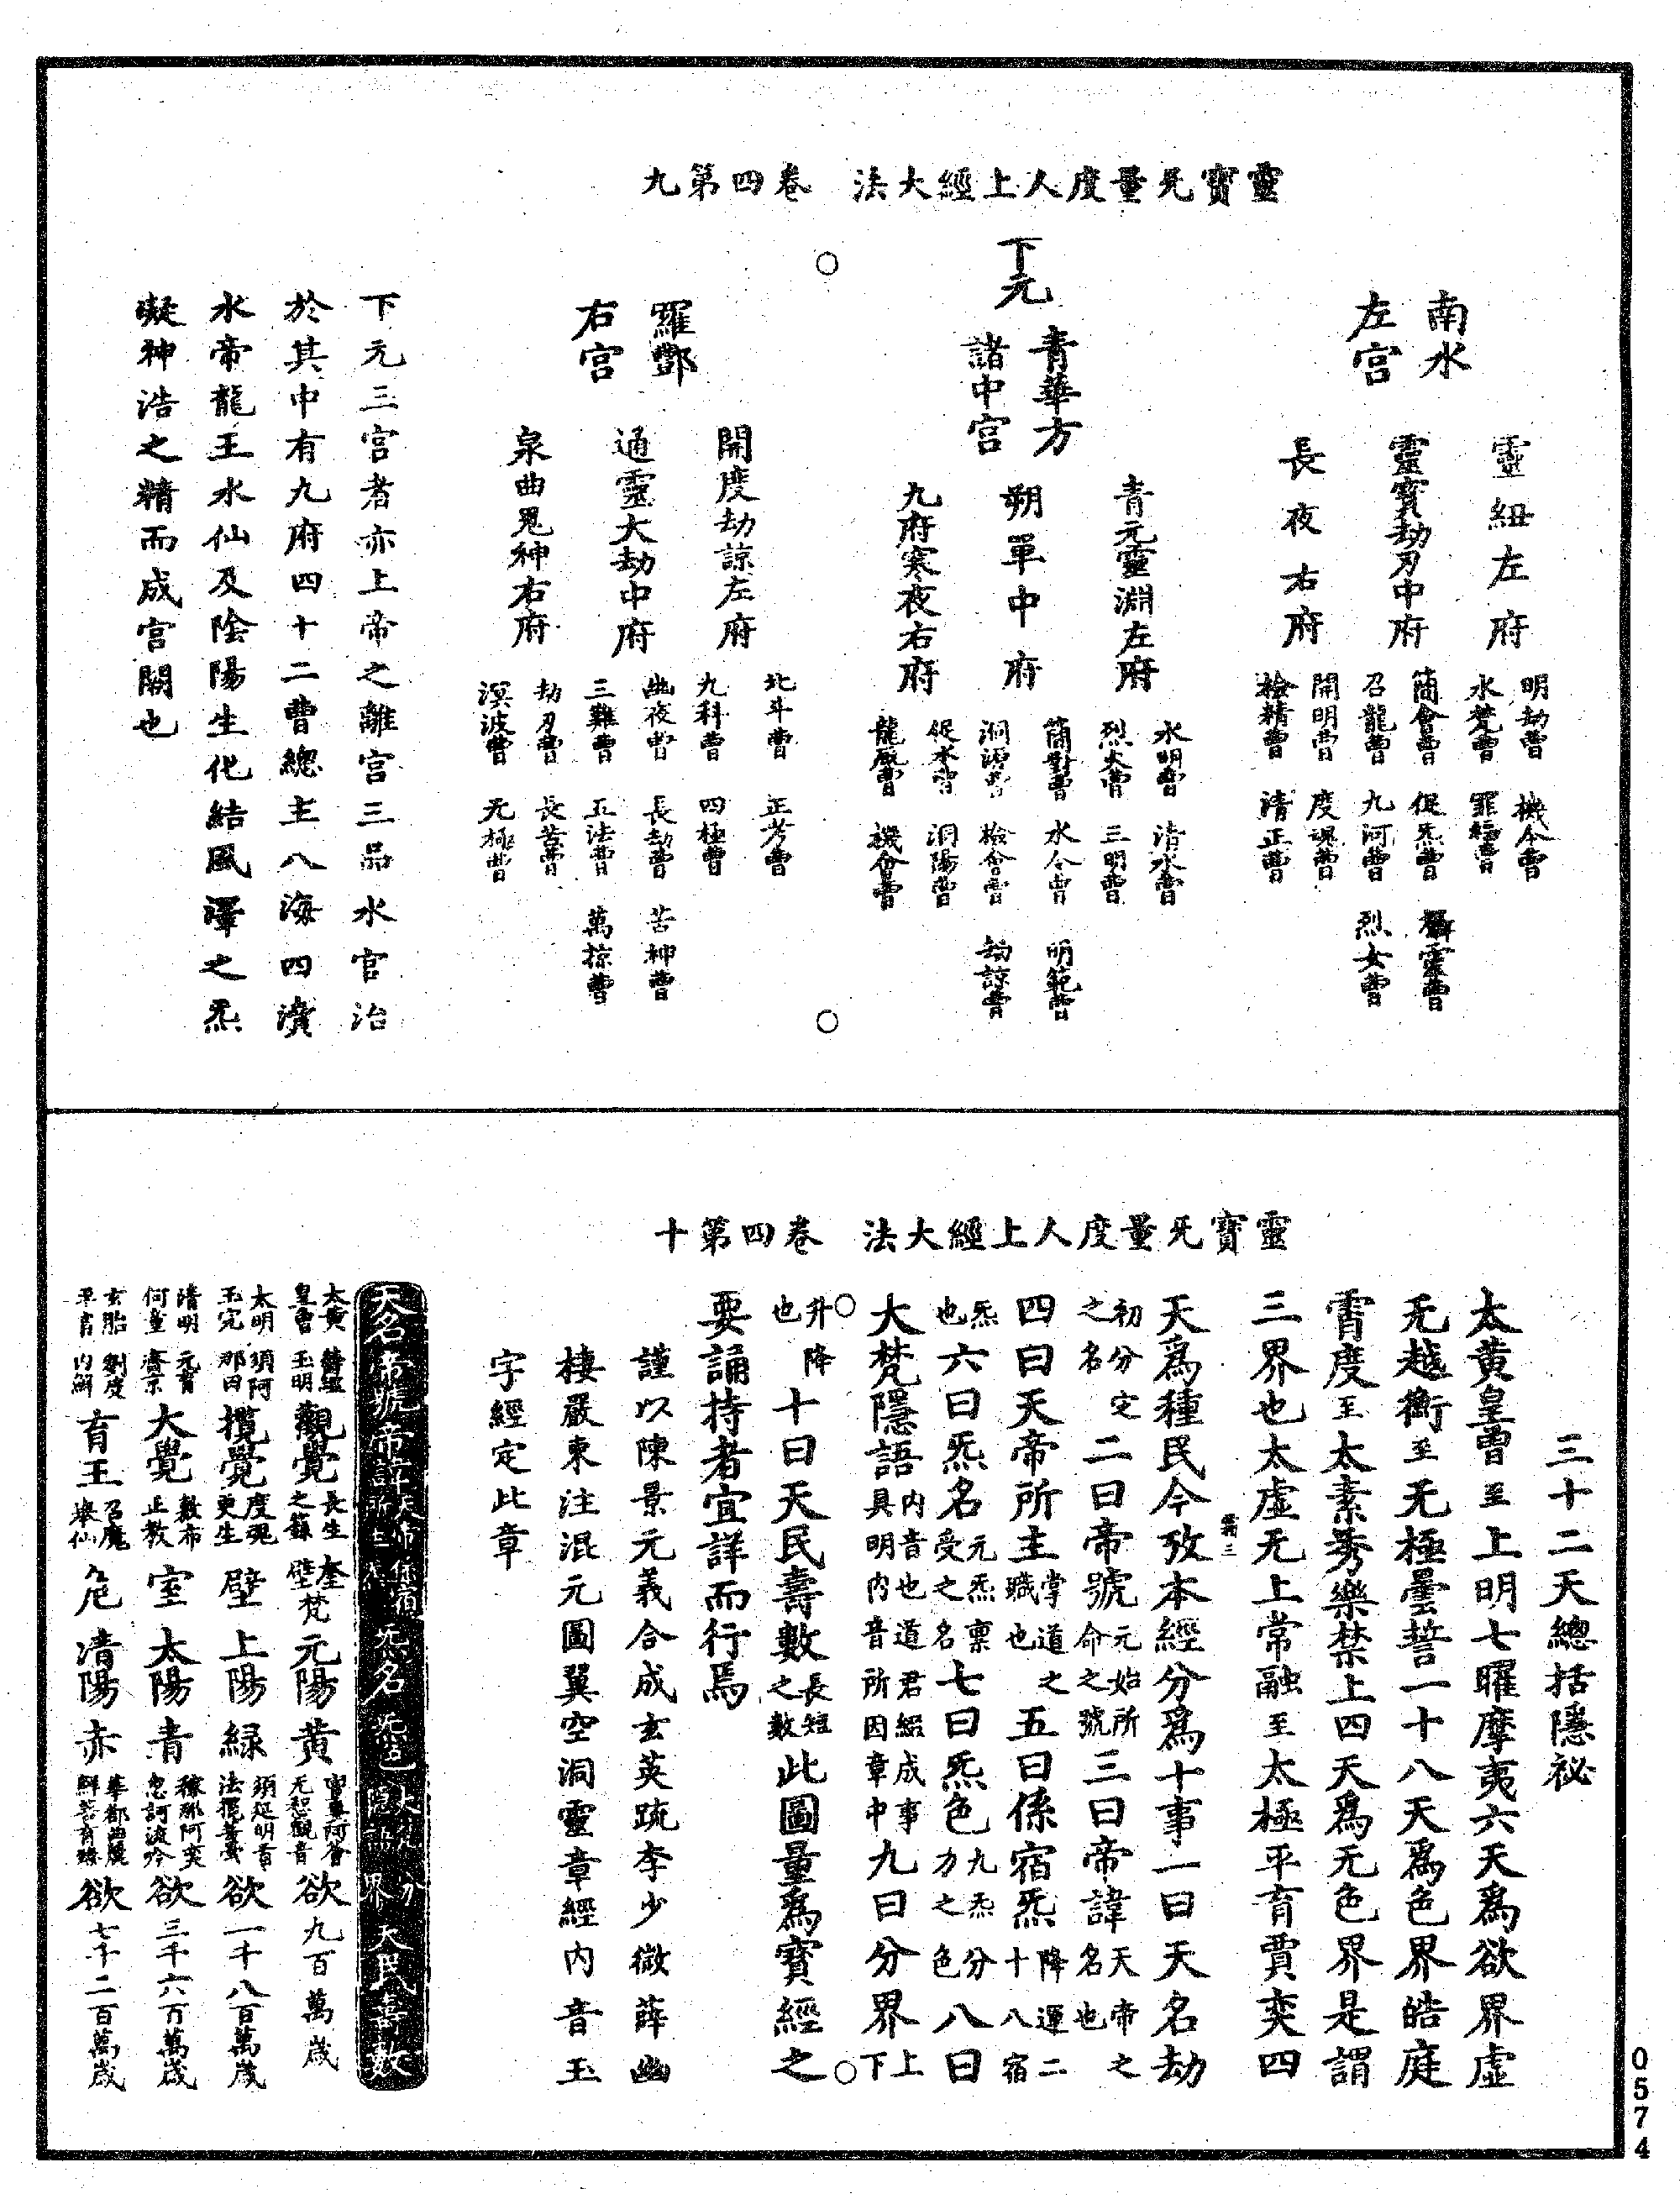 靈寶无量度人上經大法　卷四第九
南水
左宮
靈紐左府
明劫曹　機令曹
水梵曹　罪福曹
靈寶劫刃中府
簡會曹　促炁曹　攝靈曹
召龍曹　九河曹　烈女曹
長夜右府
開明曹　度魂曹
檢精曹　清正曹
下元
青華方
諸中宮
青元靈淵左府
水明曹　清水曹
烈火曹　三明曹
朔單中府
簡對曹　水令曹　明範曹
檢會曹　劫諒曹
九府寒夜右府
促水曹　洞陽曹
龍威曹　機會曹
羅酆
右宮
開度劫諒左府
北斗曹　正芳曹
九科曹　四極曹
通靈大劫中府
幽夜曹　長劫曹　苦神曹
三難曹　五法曹　萬掠曹
泉曲鬼神右府
劫刃曹　長苦曹
溟波曹　无極曹
下元三宮者亦上帝之離宮三品水官治
於其中有九府四十二曹總主八海四瀆
水帝龍王水仙及陰陽生化結風澤之炁
凝神浩之精而成宮闕也
靈寶无量度人上經大法　卷四第十
三十二天總括隱祕
太黃皇曾至上明七曜摩夷六天爲欲界虛
无越衡至无極曇誓一十八天爲色界皓庭
霄度至太素秀樂禁上四天爲无色界是謂
三界也太虛无上常融至太極平育賈奕四
天爲種民今攷本經分爲十事一曰天名劫
初分定之名二曰帝號元始所命之號三曰帝諱天帝之名也
四曰天帝所主掌道之職也五曰係宿炁降運二十八宿
炁也六曰炁名元炁稟受之名七曰炁色九炁分力之色八曰
大梵隱語內音也道君編成事具明內音所因章中九曰分界上下
升降也十曰天民壽數長短之數此圖量爲寶經之
要誦持者宜詳而行焉
謹以陳景元義合成玄英疏李少微薛幽
棲嚴東注混元圖翼空洞靈章經內音玉
字經定此章
太黃皇曾　鬱鑑玉明　觀覺　長生之籙　奎壁梵　元陽　黃　无恕觀音　欲　九百萬歲
太明玉完　須阿那田　攬覺　度魂更生　壁　上陽　綠　須延明首法攬菩曇　欲　一千八百萬歲
清明何童　元育齊京　大覺　敷布正教　室　太陽　青　稼那阿奕忽訶流吟　欲　三千六百萬歲
玄胎平育　劉度內鮮　育王　召魔舉仙　危　清陽　赤　華都曲麗鮮菩育臻　欲　七千二百萬歲
0574